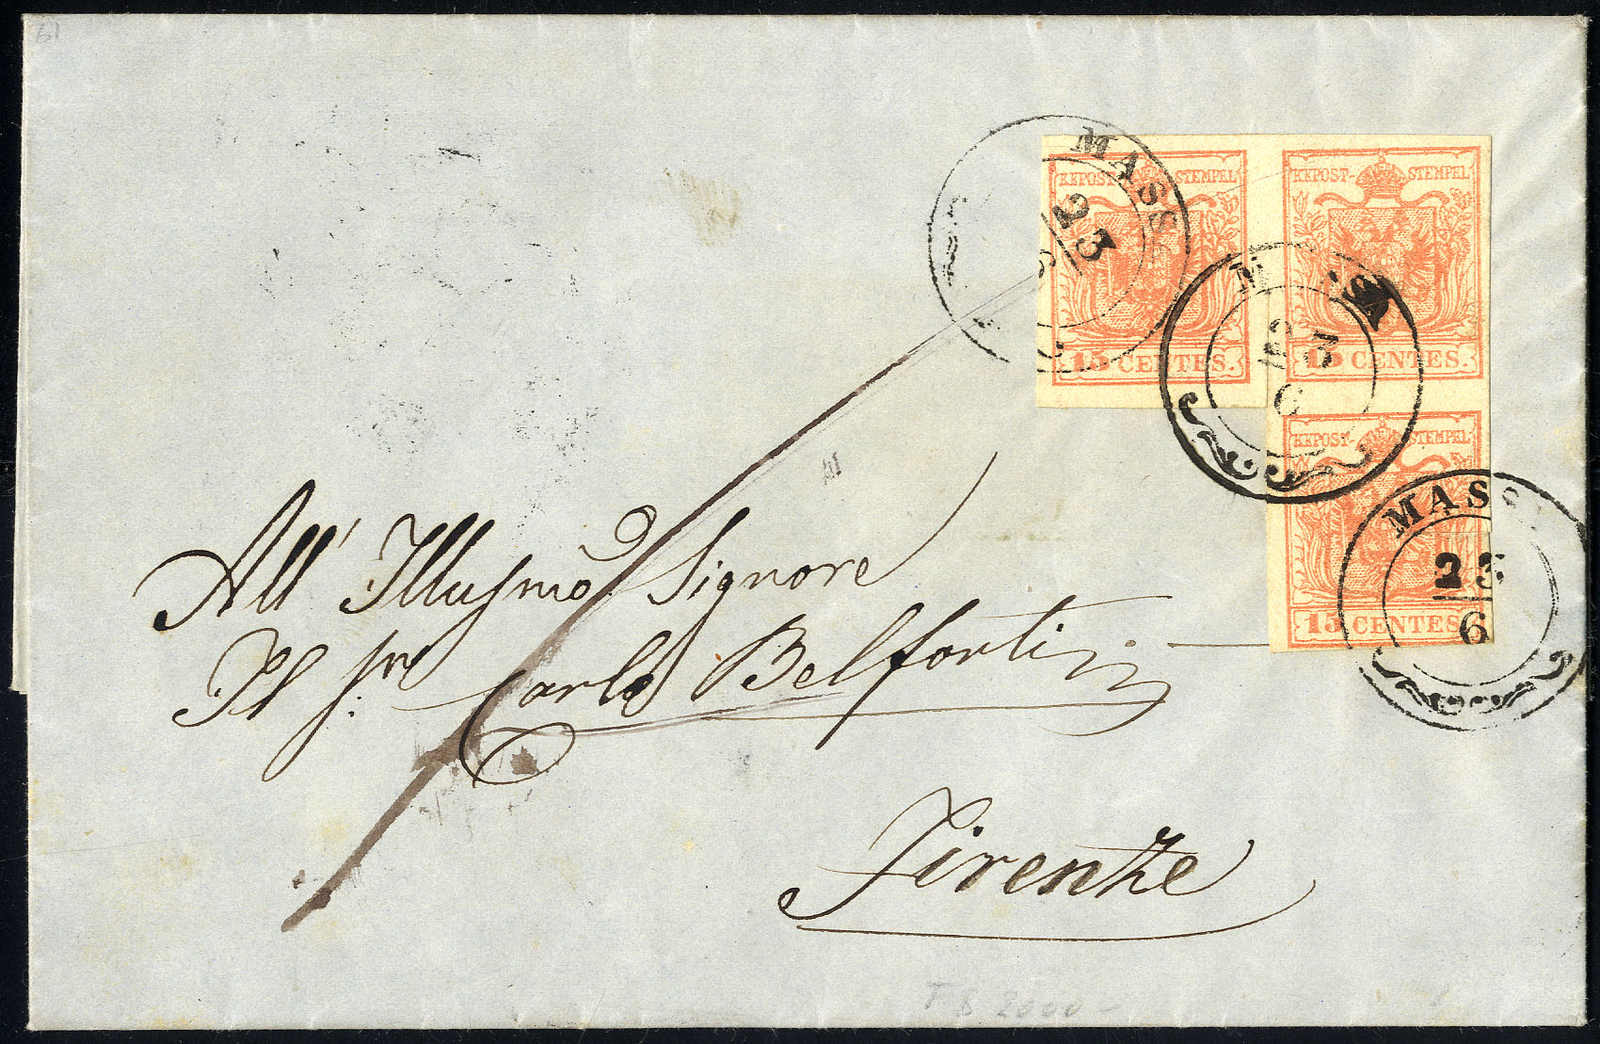 61
MASS
23
6
KKPOST- STEMPEL
15 CENTES.
KKPOST- STEMPEL
15 CENTES.
M SSA
23
6
KKPOST- STEMPEL
15 CENTES.
MASS
23
6
All' Illusmo Signore
Il Sr: Carlo Belforti
Firenze
2000-